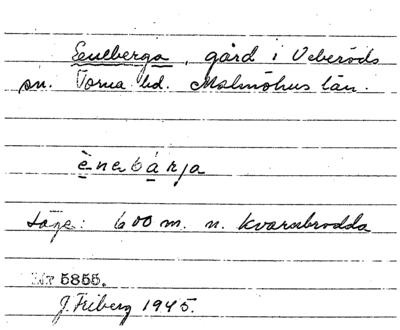 Eneberga, gård i Veberöds
sn. Torna hd. Malmöhus län.
ènebárja
Läge: 600 m. n. Kvarnbrodda
Nr 5855.
J. Friberg 1945.